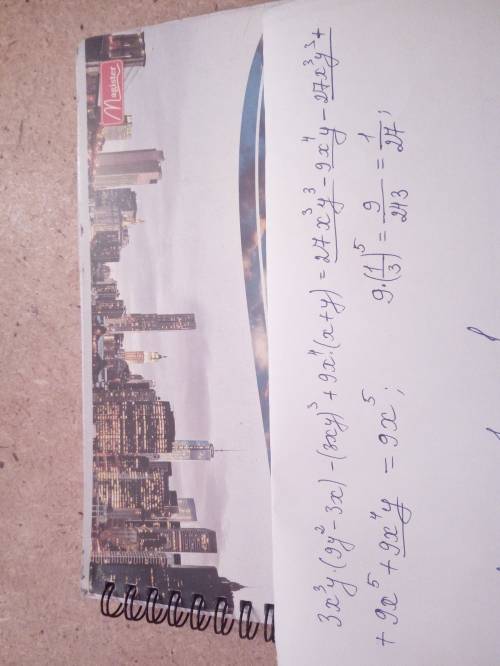 Magister
3x³y·(9y²-3x)-(3xy)³+9x⁴·(x+y)=27x³y³-9x⁴y-27x³y³+
+9x⁵+9x⁴y=9x⁵; 9·(1/3)⁵=9/243=1/27;